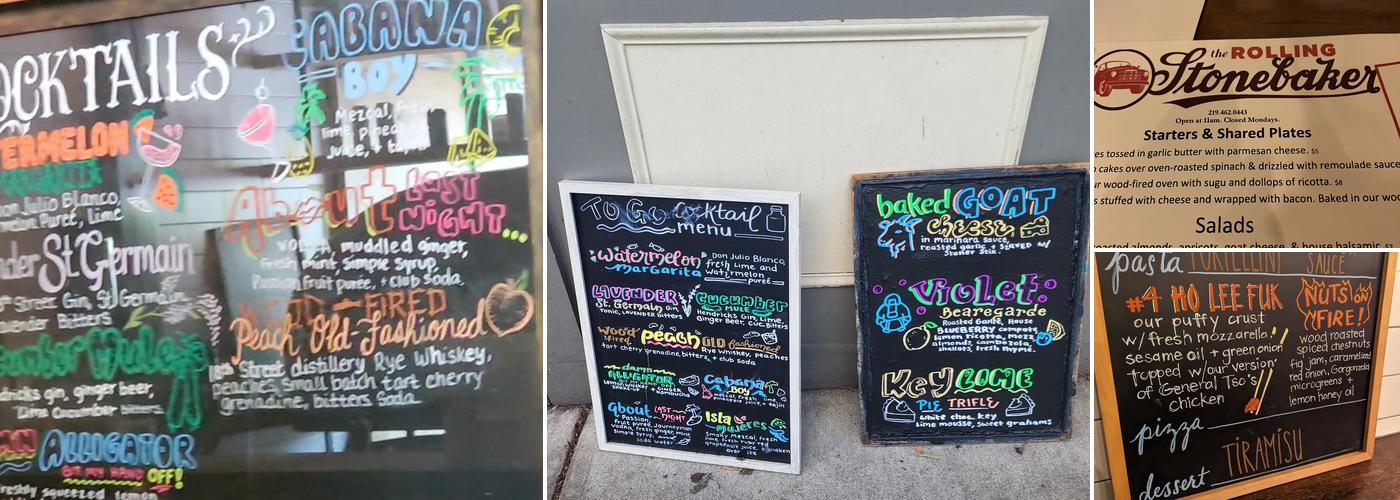 COCKTAILS
CABANA
BOY
Mezcal, fresh
lime, pineapple
juice, + tajin
ERMELON
Don Julio Blanco,
melon Puret, Lime
About LAST
NIGHT...
vodka, muddled ginger,
fresh mint, Simple syrup,
Passion fruit puree, + Club Soda.
nder St Germain
18th Street Gin, St Germain
Bitters
WOOD-FIRED
Peach Old-Fashioned
18th Street distillery Rye Whiskey,
peaches, small batch tart cherry
grenadine, bitters, Soda
gin, ginger beer
Lime Cucumber bitters.
ALLIGATOR
BIT MY HAND OFF!
freshly squeezed lemon
To Go Cocktail
menu
Watermelon
margarita
Don Julio Blanco
fresh Lime and
watermelon
puret
LAVENDER
St. Germain Gin,
Tonic, LAVENDER Bitters
CUCUMBER
MULE
Hendricks Gin, Lime,
Ginger Beer, Cuc. Bitters
wood fired peach OLD fashioned
tart cherry grenadine, bitters, + club soda
Rye Whiskey, peaches
damn
ALLIGATOR
BIT MY HAND OFF!
kombucha
Cabana
BOY
about LAST NIGHT
Passion
Fruit puree, Journeyman
vodka, fresh ginger, mint
Simple syrup, and
soda water
Isla
mujeres
Smoky Mezcal, fresh
over ice
baked GOAT
cheese
in marinara sauce,
roasted garlic + SERVED w/
Stoner Stix.
Violet
Bearegarde
Roasted Cauli, House
BLUEBERRY compote
lemon ricotta, mozz
almonds, cambozola,
shallots, fresh thyme.
KEY LIME
PIE TRIFLE
white choc. key
lime mousse, sweet grahams
the ROLLING
Stonebaker
219.462.0443
Open at 11am. Closed Mondays.
Starters & Shared Plates
es tossed in garlic butter with parmesan cheese. $5
cakes over oven-roasted spinach & drizzled with remoulade sauce
ur wood-fired oven with sugu and dollops of ricotta. $8
s stuffed with cheese and wrapped with bacon. Baked in our woo
Salads
roasted almonds, apricots, goat cheese, & house balsamic
pasta TORTELLINI SAUCE
#4 HO LEE FUK
our puffy crust
w/ fresh mozzarella,
sesame oil, + green onion
topped w/our version
of General Tso's
chicken
NUTS ON
FIRE!
wood roasted
spiced chestnuts
fig jam, caramelized
red onion, Gorgonzola
microgreens +
lemon honey oil
pizza
dessert TIRAMISU